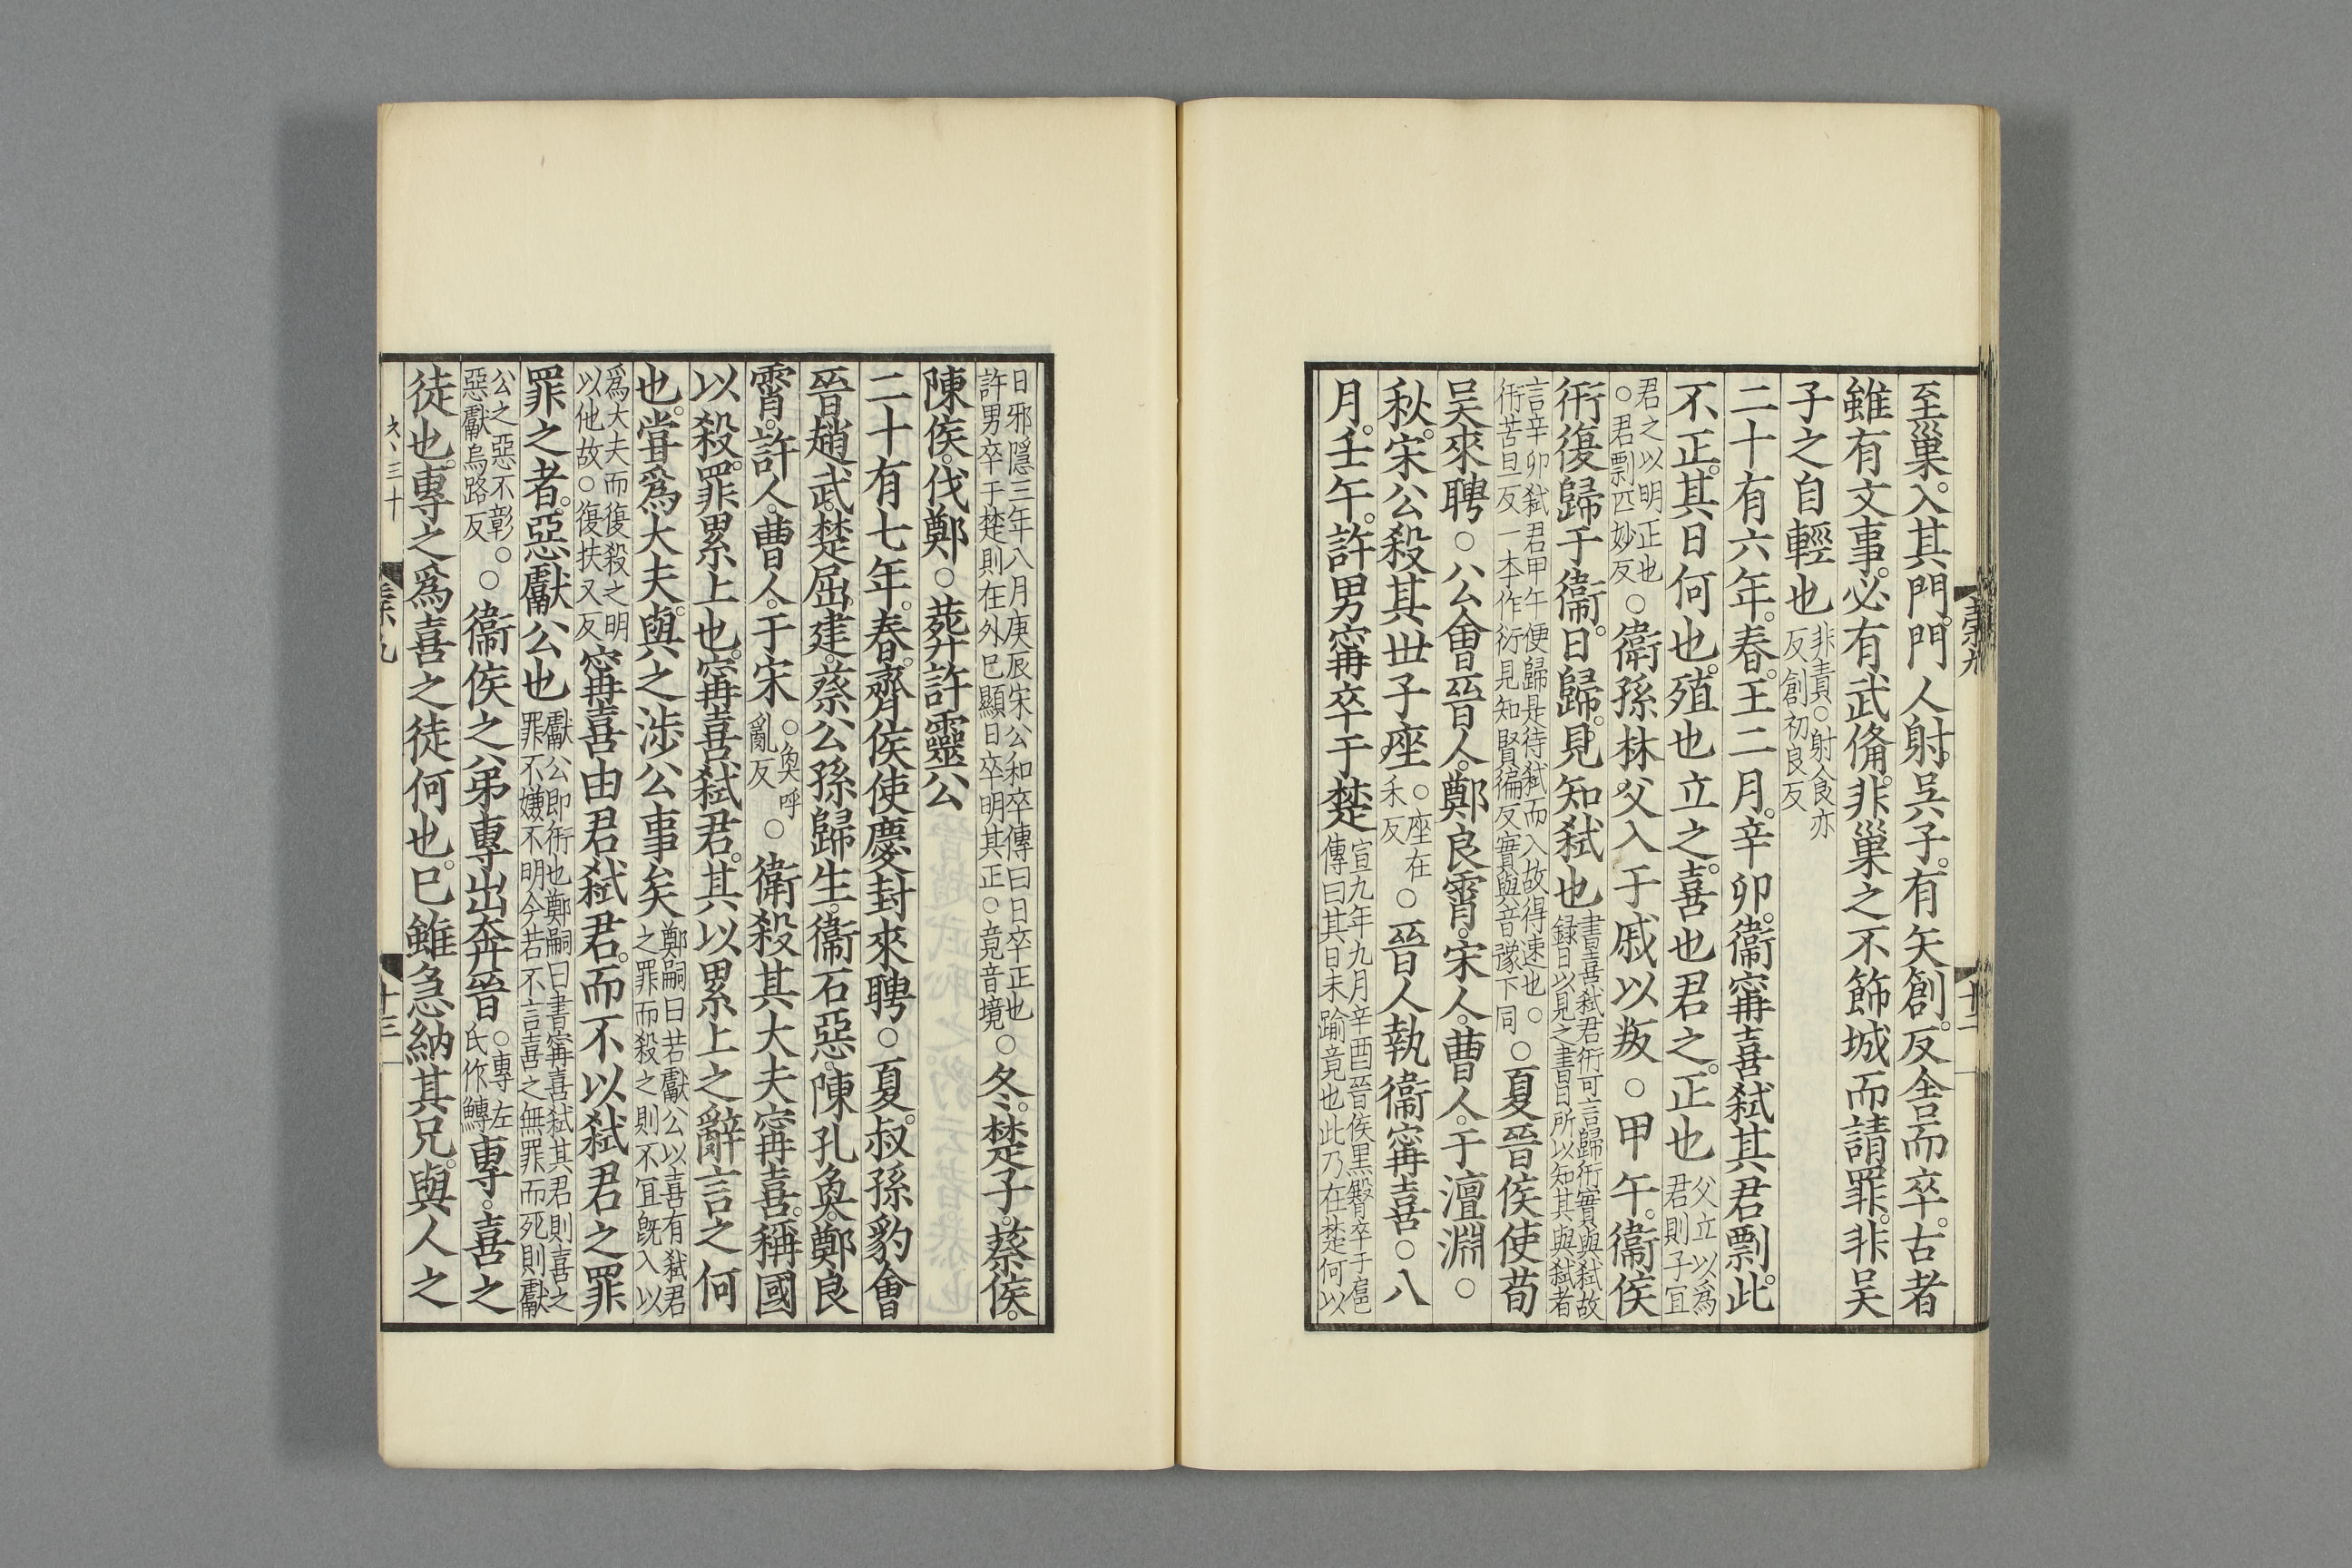 至巢。入其門。門人射。吳子。有矢創。反舍而卒。古者
雖有文事。必有武備。非巢之不飾城而請罪。非吴
子之自輕也非責○射食亦反創初良反
二十有六年。春。王二月。辛卯。衞甯喜弑其君剽。此
不正。其日何也。殖也立之。喜也君之。正也父立以爲君則子宜
君之以明正也○君剽匹妙反○衛孫林父入于戚以叛○甲午。衞侯
衎復歸于衞。日歸。見知弑也書喜弑君衎可言歸衎實與弑故録日以見之書日所以知其與弑者
言辛卯弑君甲午便歸是待弑而入故得速也○衎苦旦反一本作衍見知賢徧反實與音豫下同○夏晉侯使荀
吴來聘○公會晉人。鄭良霄。宋人。曹人。于澶淵○
秋。宋公殺其世子座○座在禾反○晉人執衞甯喜○八
月。壬午。許男甯卒于楚宣九年九月辛酉晉侯黑臀卒于扈傳曰其日未踰竟也此乃在楚何以
日邪隱三年八月庚辰宋公和卒傳曰日卒正也許男卒于楚則在外已顯日卒明其正○竟音境○冬。楚子。蔡侯。
陳侯。伐鄭○葬許靈公
二十有七年。春。齊侯使慶封來聘○夏。叔孫豹會
晉趙武。楚屈建。蔡公孫歸生。衞石惡。陳孔奐。鄭良
霄。許人。曹人。于宋○奐呼亂反○衛殺其大夫甯喜。稱國
以殺。罪累上也。甯喜弑君。其以累上之辭言之何
也。嘗爲大夫。與之涉公事矣鄭嗣曰若獻公以喜有弑君之罪而殺之則不宜旣入以
爲大夫而復殺之明以他故○復扶又反甯喜由君弑君。而不以弑君之罪
罪之者。惡獻公也獻公即衎也鄭嗣曰書甯喜弑其君則喜之罪不嫌不明今若不言喜之無罪而死則獻
公之惡不彰○惡獻烏路反○衞侯之弟專出奔晉○專左氏作鱄專。喜之
徒也。專之爲喜之徒何也。已雖急納其兄。與人之
十三